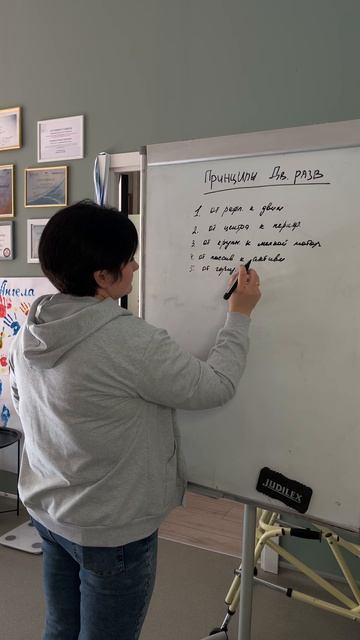 Принципы Дв. разв
1. от рефл. к движ
2. от центра к периф.
3 от крупн к мелкой мотор
4. от пассив к активн
5. от
Ангела
JUDILEX